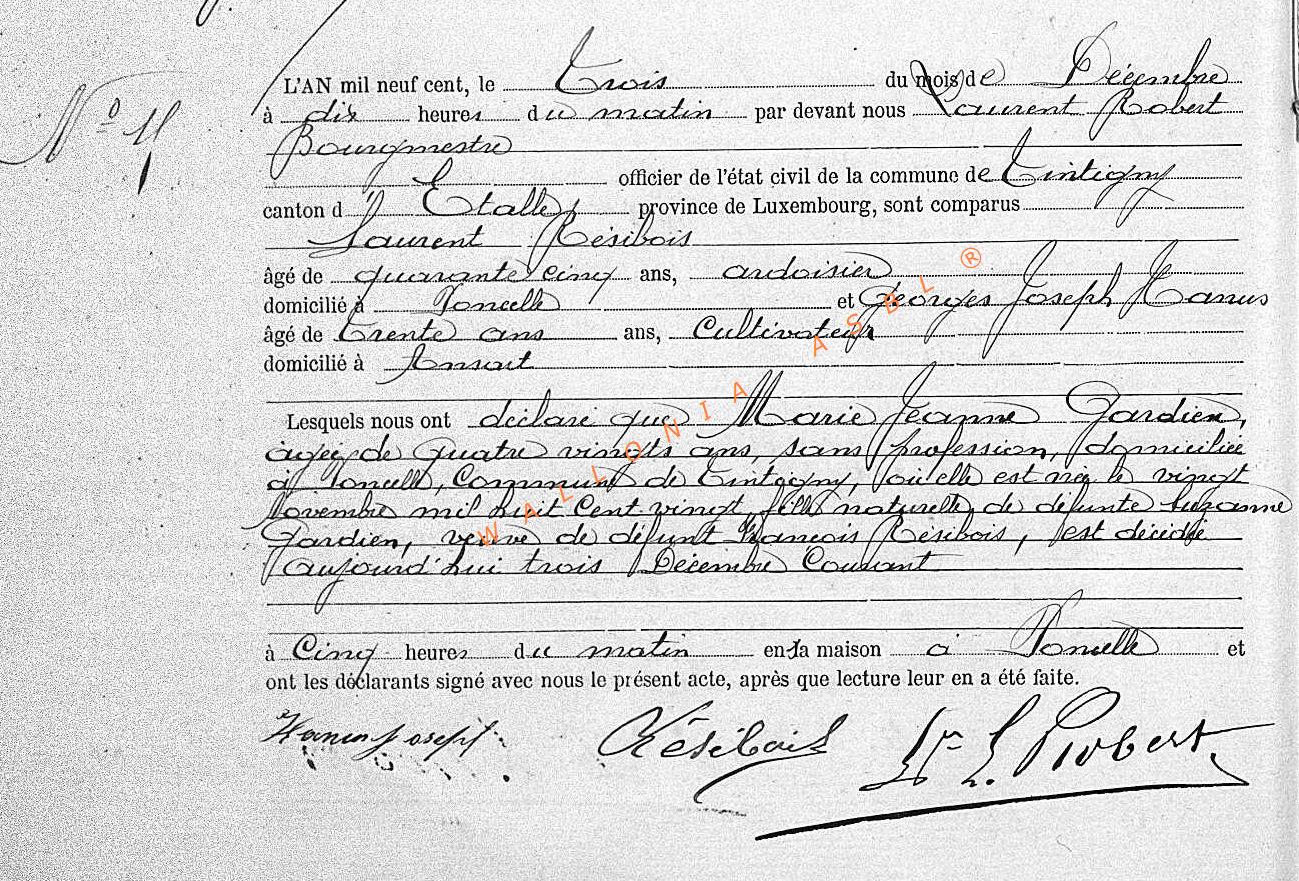 N° 11
L'AN mil neuf cent, le trois du mois de Décembre
à dix heures du matin par devant nous Laurent Robert
Bourgmestre
officier de l'état civil de la commune de Tintigny
canton d'Etalle, province de Luxembourg, sont comparus
Laurent Résibois
âgé de quarante cinq ans, ardoisier
domicilié à Poncelle et Georges Joseph Hanus
âgé de trente ans ans, Cultivateur
domicilié à Ansart
Lesquels nous ont déclaré que Marie Jeanne Gardien,
agée de quatre vingts ans, sans profession, domiciliée
à Poncelle, Commune de Tintigny, où elle est née le vingt
Novembre mil huit Cent vingt, fille naturelle de défunte Suzanne
Gardien, veuve de défunt François Résibois, est décédée
aujourd'hui trois Décembre Courant
à Cinq heures du matin en sa maison à Poncelle et
ont les déclarants signé avec nous le présent acte, après que lecture leur en a été faite.
Hanus Joseph Résibois Dr L. Robert
WALLONIA ASBL ®